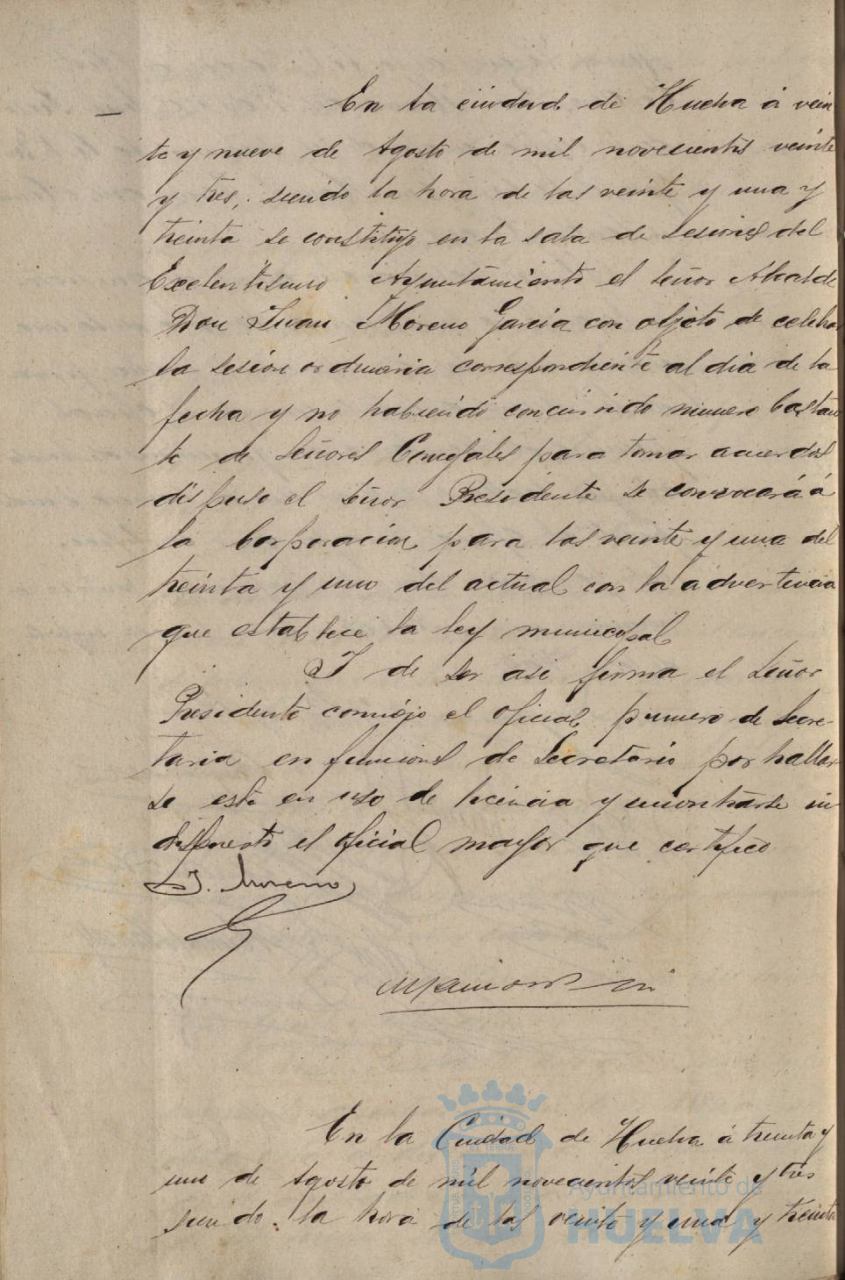 En la ciudad de Huelva á vein
te y nueve de Agosto de mil novecientos veinte
y tres, siendo la hora de las veinte y una y
treinta se constituyó en la sala de sesiones del
Excelentisimo Ayuntamiento el señor Alcalde
Don Juan Moreno Garcia con objeto de celebrar
la sesion ordinaria correspondiente al dia de la
fecha y no habiendo concurrido numero bastan
te de Señores Concejales para tomar acuerdos
dispuso el señor Presidente se convocará á
la Corporacion para las veinte y una del
treinta y uno del actual con la advertencia
que establece la ley municipal
Y de ser asi firma el Señor
Presidente conmigo el oficial primero de Secre-
taria en funciones de Secretario por hallar
se este en uso de licencia y encontrarse in
dispuesto el oficial mayor que certifico
J. Moreno
En la Ciudad de Huelva á treinta y
uno de Agosto de mil novecientos veinte y tres
siendo la hora de las veinte y una y treinta
Ayuntamiento de
HUELVA